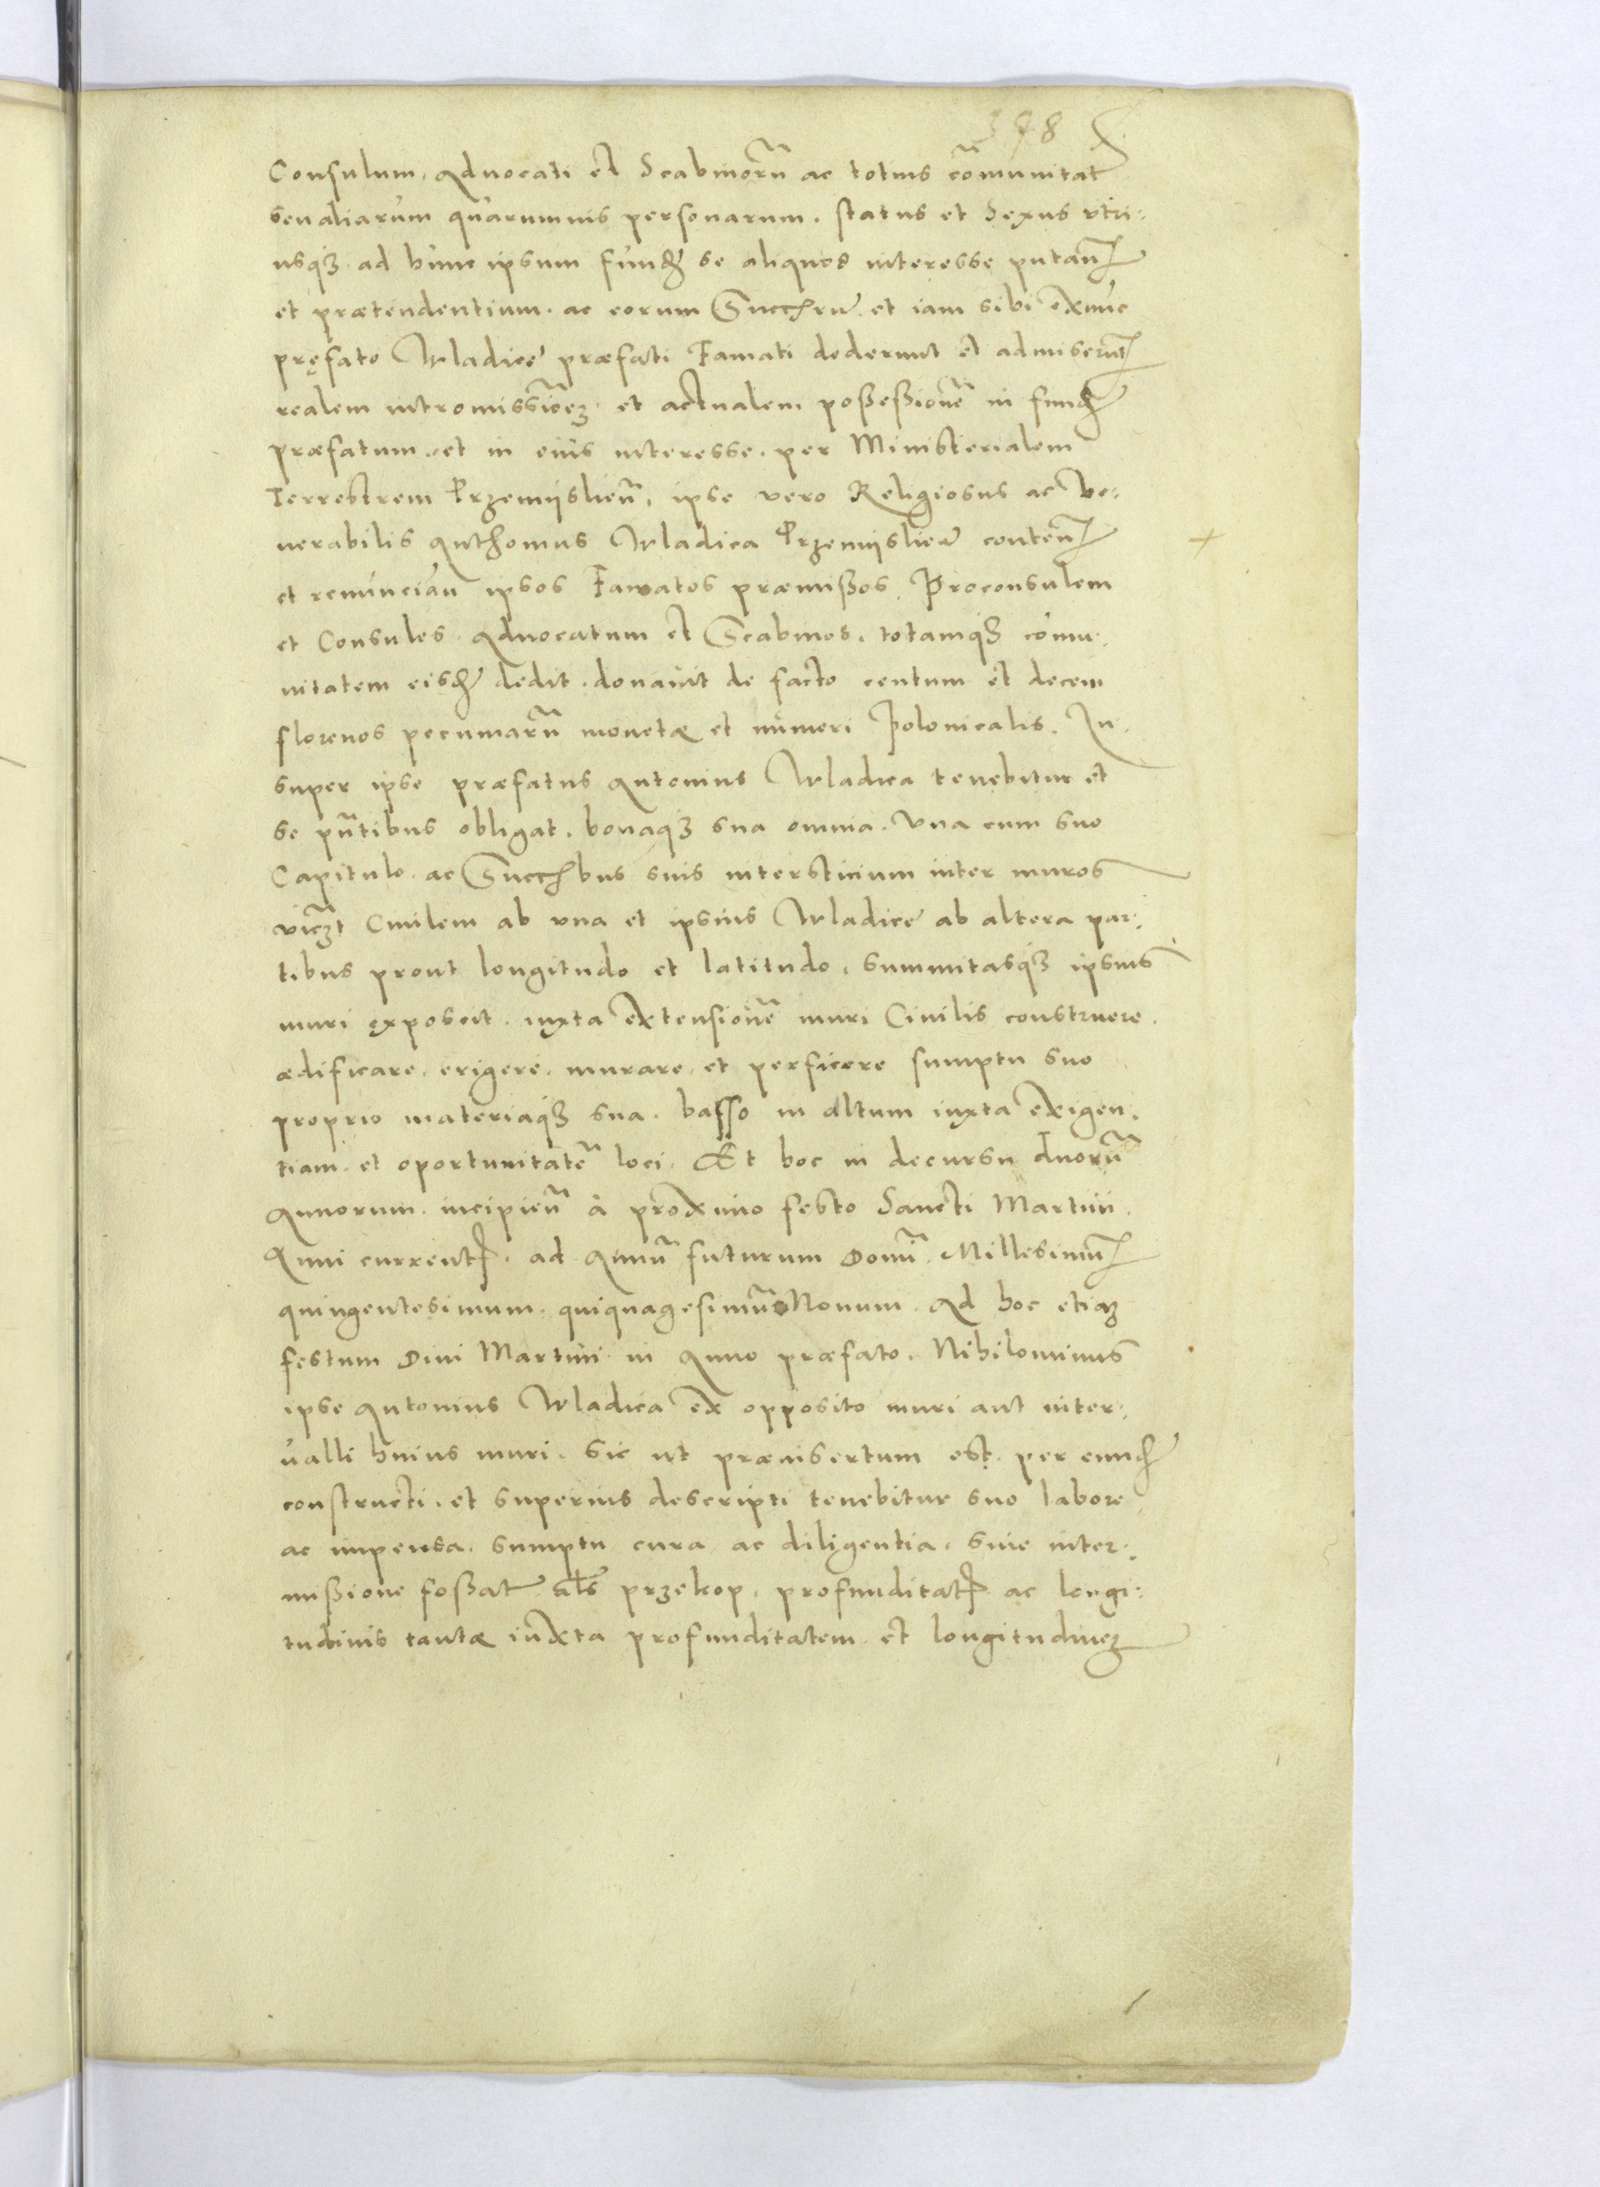 398
Consulum, Advocati et Scabinorũ ac totius cõmunitat
seu aliarum quarumvis personarum, status et Sexus vtri:
usq3 ad hunc ipsum fund se aliquos interesse putan
et prætendentium, ac eorum Succru et iam sibi exnuc
pręfato Wladice præfati Famati dederunt et admiserut
realem intromissioe3 et actualem possessionẽ in fund
præfatum, et in eius interesse, per Ministerialem
Terrestrem Przemijslien, ipse vero Religiosus ac Ve:
nerabilis Anthonius Wladica Przemijslien conten
et renuncian ipsos Famatos præmissos, Proconsulem
et Consules, Advocatum et Scabinos, totamq3 comu:
nitatem eisd dedit, donavit de facto centum et decem
florenos pecuniarũ monetæ et numeri Polonicalis. In
super ipse præfatus Antonius Wladica tenebitur et
se pñtibus obligat, bonaq3 sua omnia, Vna cum suo
Capitulo, ac Succbus suis intersticium inter muros
vic3t Civilem ab vna et ipsius Wladice ab altera par:
tibus prout longitudo et latitudo, summitasq3 ipsius
muri exposcit, iuxta extensionẽ muri Civilis construere,
ædificare, erigere, murare, et perficere sumptu suo
proprio materiaq3 sua, basso in altum iuxta exigen,
tiam, et oportunitatẽ loci. Et hoc in decursu duorũ
Annorum, incipien à proximo festo Sancti Martini
Anni current, ad Annũ futurum Domi, Millesimu
quingentesimum, quiquagesimũ Nonum, Ad hoc etia3
festum Divi Martini in Anno præfato, Nihilominus
ipse Antonius Wladica ex opposito muri aut inter:
valli huius muri, sic ut præinsertum est, per eund
constructi, et superius descripti tenebitur suo labore
ac impensa, sumptu cura ac diligentia, sine inter:
missione fossat als przekop, profunditat ac longi:
tudinis tantæ iuxta profunditatem et longitudine3